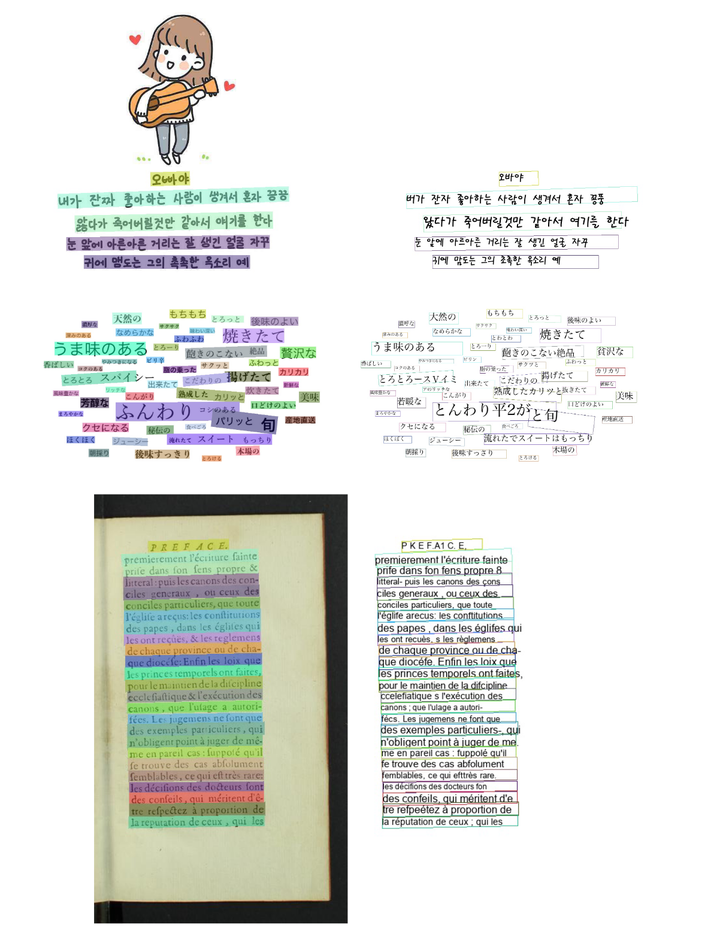 오빠야
내가 잔짜 좋아하는 사람이 생겨서 혼자 끙끙
앓다가 죽어버릴것만 같아서 얘기를 한다
눈 앞에 아른아른 거리는 잘 생긴 얼굴 자꾸
귀에 맴도는 그의 촉촉한 목소리 예
오빠야
버가 잔자 좋아하는 사람이 생겨서 혼자 끙뚱
앐다가 죽어버릴것만 같아서 여기를 한다
눈 앞에 아르아른 거리는 잘 생긴 얼굴 자꾸
귀에 맘도는 그의 초촉한 목소리 예
もちもち
天然の
とろっと
後味のよい
濃厚な
サクサク
なめらかな
ふわふわ
焼きたて
うま味のある
とろーり
飽きのこない
絶品
贅沢な
香ばしい
ピリ辛
サクッと
ふわっと
カリカリ
とろとろ
スパイシー
出来たて
こだわりの
揚げたて
こんがり
熟成した
カリッと
炊きたて
美味
芳醇な
ふんわり
コシのある
口どけのよい
パリッと
旬
産地直送
クセになる
秘伝の
ほくほく
ジューシー
スイート
もっちり
朝採り
後味すっきり
とろける
本場の
もちもち
天然の
とろっと
後味のよい
濃呼な
なめらかな
焼きたて
うま味のある
とろーり
飽きのこない絶品
贅沢な
サクッと
ふわっと
カリカリ
とろとろースVイミ
出来たて
こだわりの
揚げたて
こんがり
熟成したカリッと炊きたて
美味
若暖な
とんわり平2が
と旬
口どけのよい
産地直送
クセになる
秘伝の
ほくほく
ジューシー
流れたてスイートはもっちり
朝採り
後味すっきり
とろける
本場の
PREFACE.
premierement l'écriture fainte
prife dans fon fens propre &
litteral: puis les canons des con-
ciles generaux , ou ceux des
conciles particuliers, que toute
l'églife a reçus: les conftitutions
des papes , dans les églifes qui
les ont reçûës, & les reglemens
de chaque province ou de cha-
que diocéfe. Enfin les loix que
les princes temporels ont faites,
pour le maintien de la difcipline
ecclefiaftique & l'exécution des
canons , que l'ufage a autori-
fées. Les jugemens ne font que
des exemples particuliers , qui
n'obligent point à juger de mê-
me en pareil cas : fuppofé qu'il
fe trouve des cas abfolument
femblables, ce qui eft très-rare:
les décifions des docteurs font
des confeils, qui méritent d'ê-
tre refpectez à proportion de
la réputation de ceux , qui les
P K E F.A1 C. E,
premierement l'écriture fainte
prife dans fon fens propre 8
litteral- puis les canons des çons
ciles generaux , ou ceux des
conciles particuliers, que toute
l'églife arecus: les conftitutions
des papes , dans les églifes qui
les ont reçuès, s les règlemens
de chaque province ou de cha-
que diocéfe. Enfin les loix que
les princes temporels ont faites,
pour le maintien de la difcipline
ccelefiatique s l'exécution des
canons ; que l'ulage a autori-
fécs. Les jugemens ne font que
des exemples particuliers-, qui
n'obligent point à juger de me
me en pareil cas : fuppolé qu'il
fe trouve des cas abfolument
femblables, ce qui efttrès rare.
les décifions des docteurs fon
des confeils, qui méritent d'e
tre refpeétez à proportion de
la réputation de ceux ; qui les